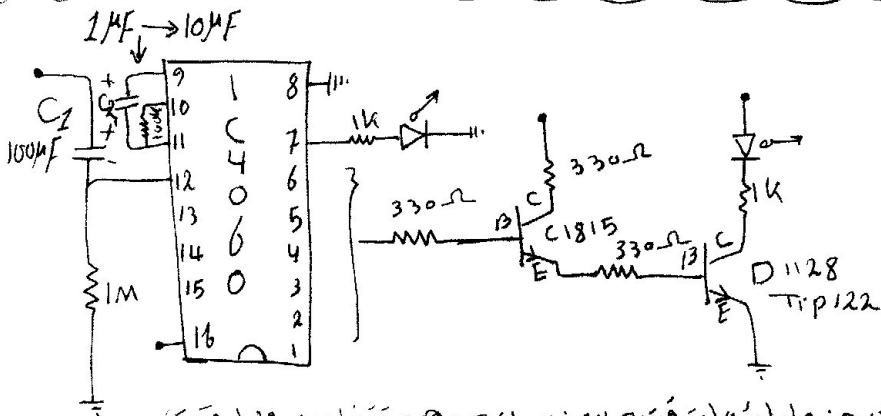 1µF → 10µF
C1
100µF
+
C2
+
-
100k
9
10
11
12
13
14
15
16
IC4060
8
7
6
5
4
3
2
1
1K
1M
330Ω
B
C
E
C1815
330Ω
330Ω
B
C
E
1K
D1128
Tip122